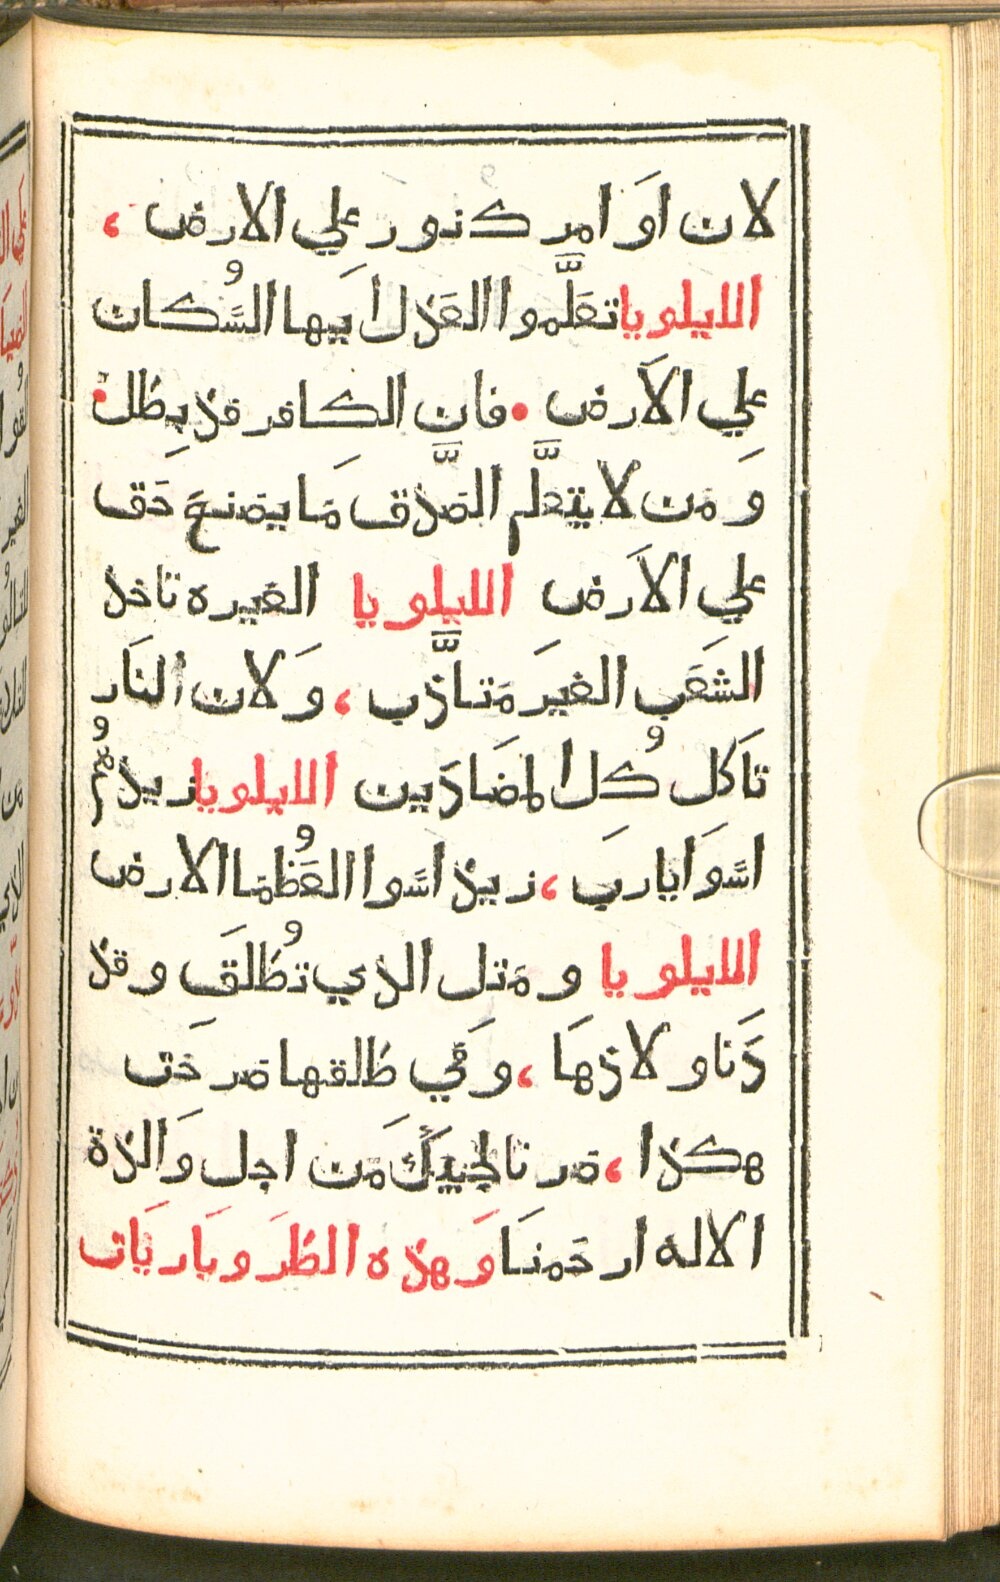 لان اوَامركنور علي الارض ،
الايلويا تعَلَّموا العَدل اَيها السُّكان
علي الاَرض • فان الكافر قد بطل •
وَمَن لا يتعلَّم الصَّدق مَا يصنعَ حَق
علي الاَرض الليلويا الغيره تاخد
الشعَب الغيرَ مَتاَدَّب ، وَلان النَار
تاَكل كُل المضَادَين الايلويا زيدهُم
اسًوَا يارب ، زَييد اسًوا العُظمَا الارض
الايلويا ومَتل الدي تُطلقَ وقد
دَنا ولادهَا ، وَفي طلقها صَرخَت
هكدا ، صَرنا لحَبيبَكَ مَن اجل وَالدة
الاله ارحَمنَا وَهده الطرَوبَاريَات